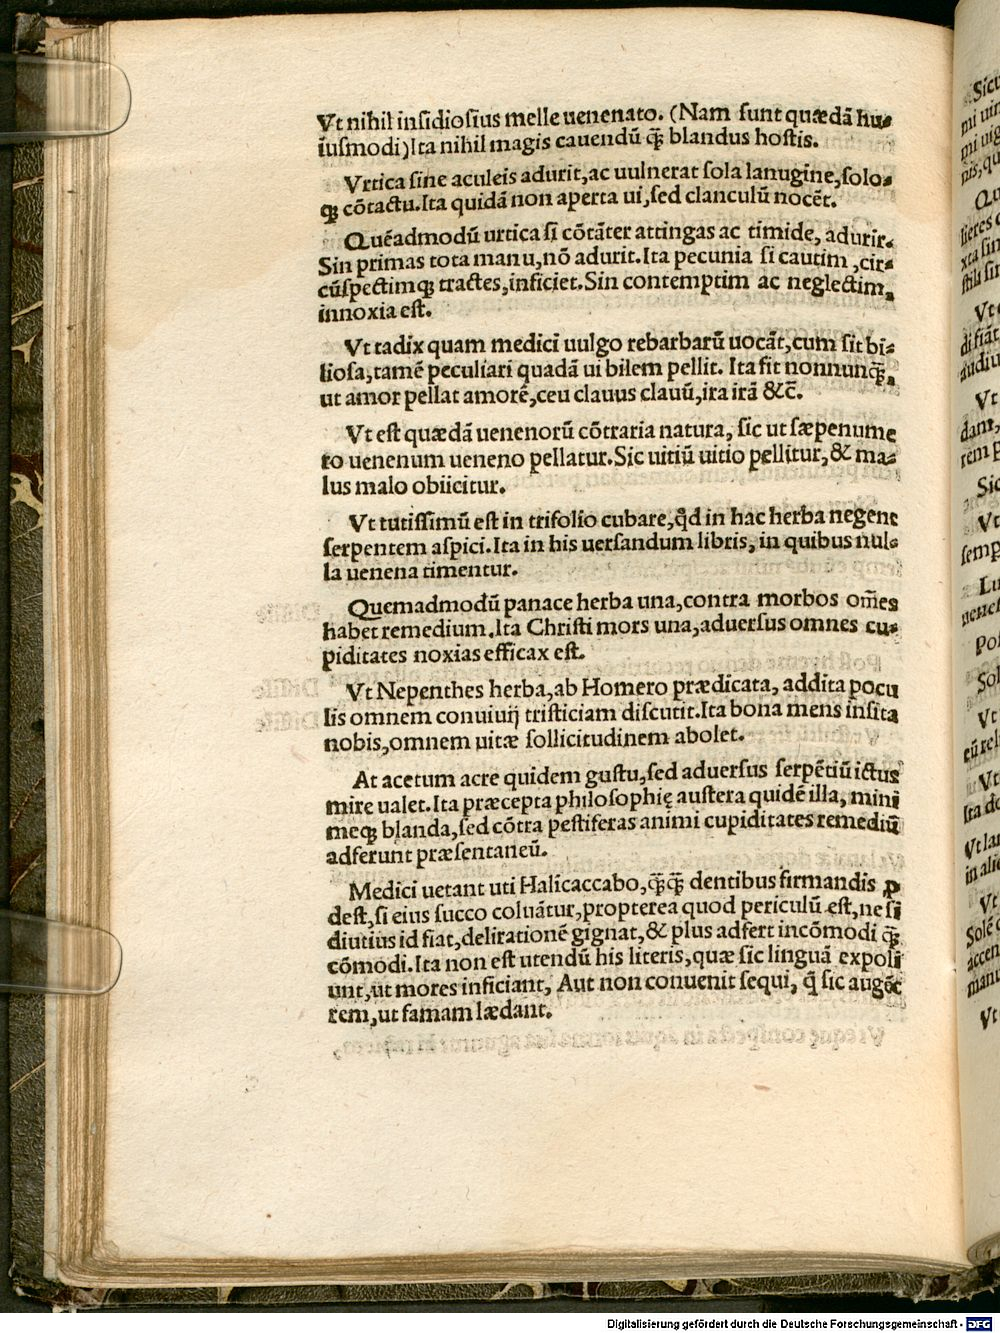 Vt nihil insidiosius melle uenenato. (Nam sunt quædā hu⸗
iusmodi) Ita nihil magis cauendū q̄ȝ blandus hostis.
Vrtica sine aculeis adurit, ac uulnerat sola lanugine, solo⸗
qȝ cōtactu. Ita quidā non aperta ui, sed clanculū nocēt.
Quēadmodū urtica si cōtāter attingas ac timide, adurit.
Sin primas tota manu, nō adurit. Ita pecunia si cautim, cir⸗
cūspectimqȝ tractes, inficiet. Sin contemptim ac neglectim,
innoxia est.
Vt radix quam medici uulgo rebarbarū uocāt, cum sit bi⸗
liosa, tamē peculiari quadā ui bilem pellit. Ita fit nonnunq̄ȝ,
ut amor pellat amorē, ceu clauus clauū, ira irā &c̄.
Vt est quædā uenenorū cōtraria natura, sic ut sæpenume
ro uenenum ueneno pellatur. Sic uitiū uitio pellitur, & ma⸗
lus malo obiicitur.
Vt tutissimū est in trifolio cubare, qd̓ in hac herba negent
serpentem aspici. Ita in his uersandum libris, in quibus nul⸗
la uenena timentur.
Quemadmodū panace herba una, contra morbos om̄es
habet remedium. Ita Christi mors una, aduersus omnes cu⸗
piditates noxias efficax est.
Vt Nepenthes herba, ab Homero prædicata, addita pocu
lis omnem conuiuij tristiciam discutit. Ita bona mens insita
nobis, omnem uitæ sollicitudinem abolet.
At acetum acre quidem gustu, sed aduersus serpētiū ictus
mire ualet. Ita præcepta philosophię austera quidē illa, mini
meqȝ blanda, sed cōtra pestiferas animi cupiditates remediū
adferunt præsentaneū.
Medici uetant uti Halicaccabo, q̄ȝq̄ȝ dentibus firmandis ꝓ
dest, si eius succo coluātur, propterea quod periculū est, ne si
diutius id fiat, delirationē gignat, & plus adfert incōmodi q̄ȝ
cōmodi. Ita non est utendū his literis, quæ sic linguā expoli
unt, ut mores inficiant, Aut non conuenit sequi, q̄ sic augēt
rem, ut famam lædant.
Digitalisierung gefördert durch die Deutsche Forschungsgemeinschaft - DFG